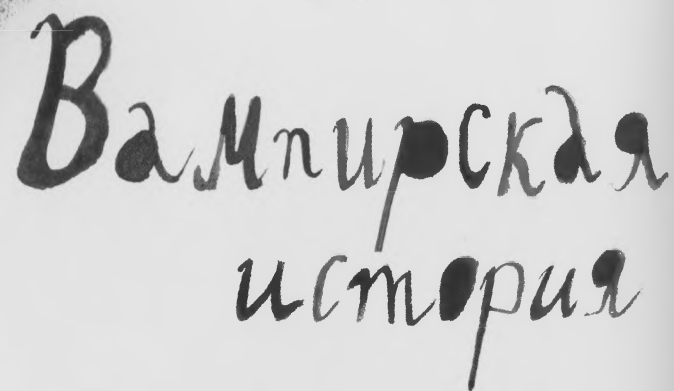 Вампирская
история